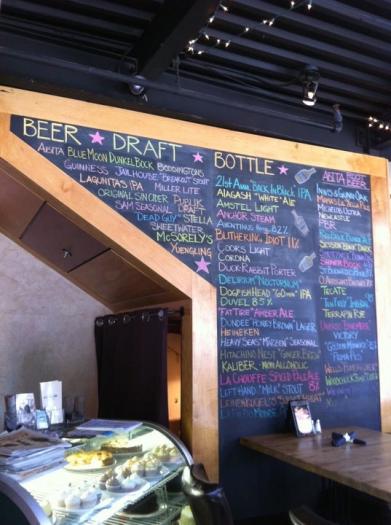 BEER ★ DRAFT ★
ABITA BLUE MOON DUNKEL BOCK BODDINGTONS
GUINNESS JAILHOUSE "BREAKOUT STOUT"
LAGUNITAS IPA MILLER LITE
ORIGINAL SIN CIDER PUBLIC DRAFT
SAM SEASONAL
"DEAD GUY" STELLA
SWEETWATER
McSORELY'S
YUENGLING
BOTTLE ★
21st Amm. BACK IN BLACK IPA
ALAGASH "WHITE" ALE
AMSTEL LIGHT
ANCHOR STEAM
AVENTINUS
BLITHERING IDIOT 11%
COORS LIGHT
CORONA
DUCK RABBIT PORTER
DELIRIUM "NOCTURNUM"
DOGFISH HEAD "60 MIN" IPA
DUVEL 8.5%
"FAT TIRE" AMBER ALE
DUNDEE HONEY BROWN LAGER
HEINEKEN
HEAVY SEAS "MARZEN" SEASONAL
HITACHINO NEST "GINGER BREW"
KALIBER - NON ALCOHOLIC
LA CHOUFFE SPICED PALE ALE 8%
LEFT HAND "MILK" STOUT
LEINENKUGEL'S
ABITA ROOT BEER
MICHELOB ULTRA
NEWCASTLE
PBR
SESSION BLACK
TECATE
TERRAPIN RYE
VICTORY
"GOLDEN MONKEY"
WOODCHUCK